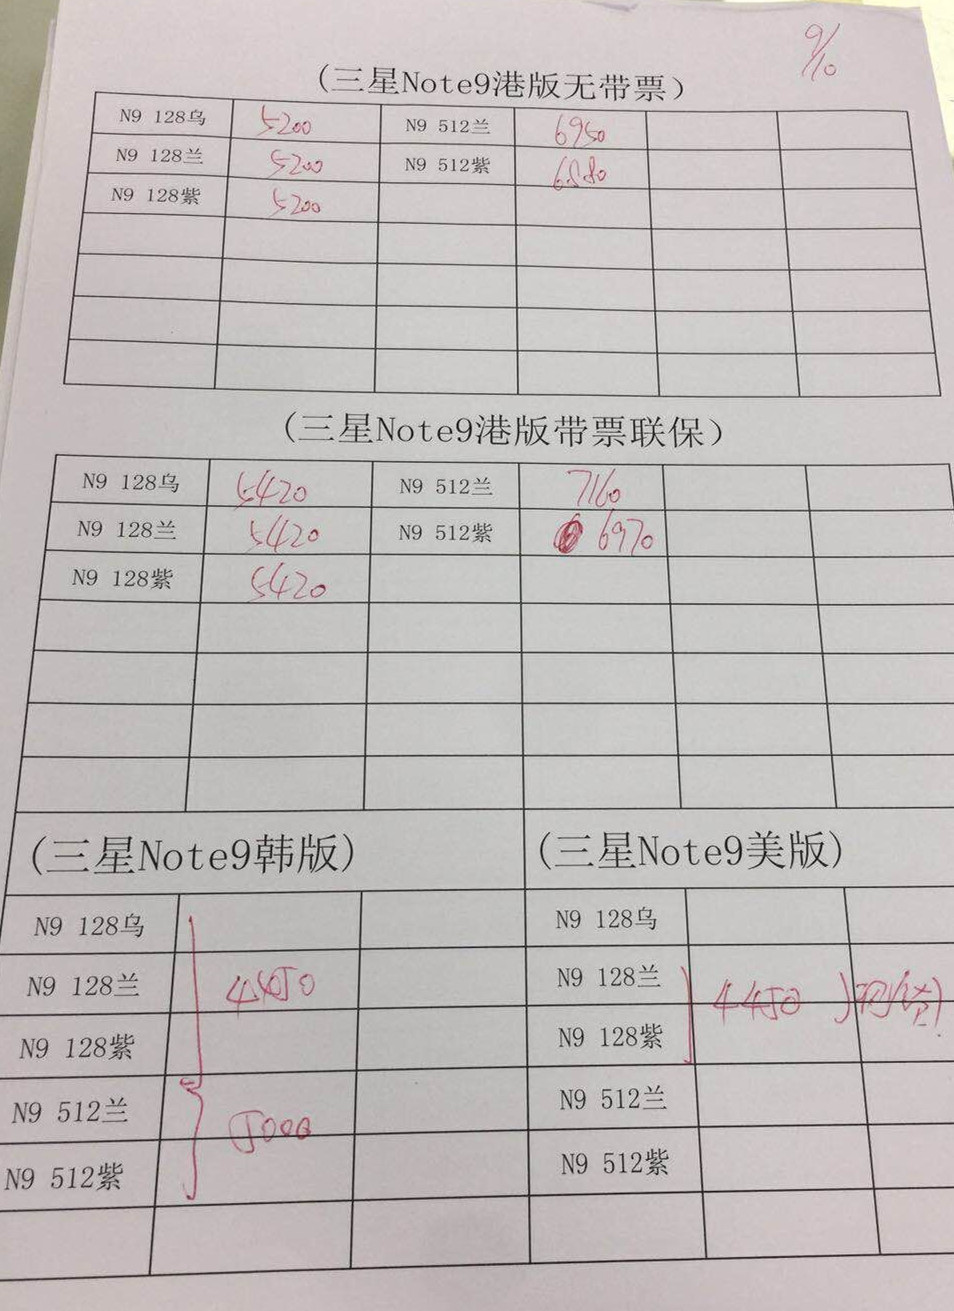 9/10
(三星Note9港版无带票)
N9 128乌 5200 N9 512兰 6950
N9 128兰 5200 N9 512紫 6880
N9 128紫 5200
(三星Note9港版带票联保)
N9 128乌 5420 N9 512兰 7160
N9 128兰 5420 N9 512紫 6970
N9 128紫 5420
(三星Note9韩版) (三星Note9美版)
N9 128乌 N9 128乌
N9 128兰 N9 128兰 4450
N9 128紫 N9 128紫
N9 512兰 5000 N9 512兰
N9 512紫 N9 512紫